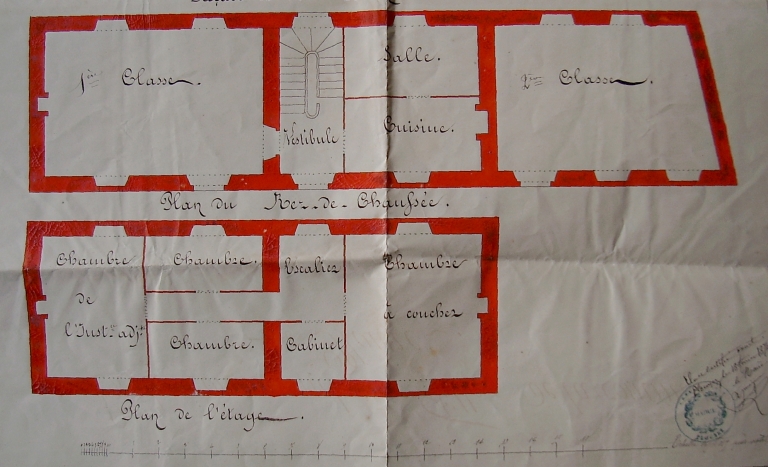 1ère Classe.
Salle.
2ème Classe.
Vestibule
Cuisine.
Plan du Rez-de-Chaussée.
Chambre
Chambre.
Escalier
Chambre
de
à coucher
l'Instr adjt
Chambre.
Cabinet
Plan de l'étage.